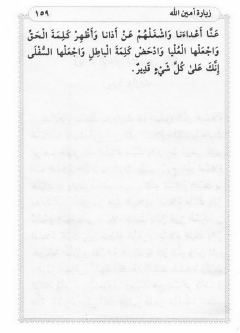 زيارة أمين الله ١٥٩
عَنّا أَعْداءَنا وَاشْغَلْهُمْ عَنْ أَذانا وَأَظْهِرْ كَلِمَةَ الْحَقِّ
وَاجْعَلْهَا الْعُلْيا وَادْحَضْ كَلِمَةَ الْباطِلِ وَاجْعَلْهَا السُّفْلى
إِنَّكَ عَلىٰ كُلِّ شَيْءٍ قَدِيرٌ.